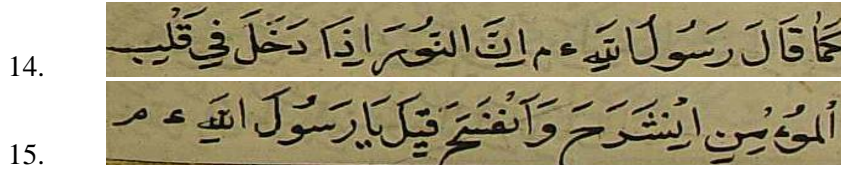 14. كَمَا قَالَ رَسُولَ اللّٰهِ ء م اِنَّ النُّورَ اِذَا دَخَلَ فِي قَلْبِ
15. اَلْمُؤْمِنِ اِنْشَرَحَ وَاَنْفَسَحَ قِيلَ يَارَسُولَ اللّٰهِ ء م